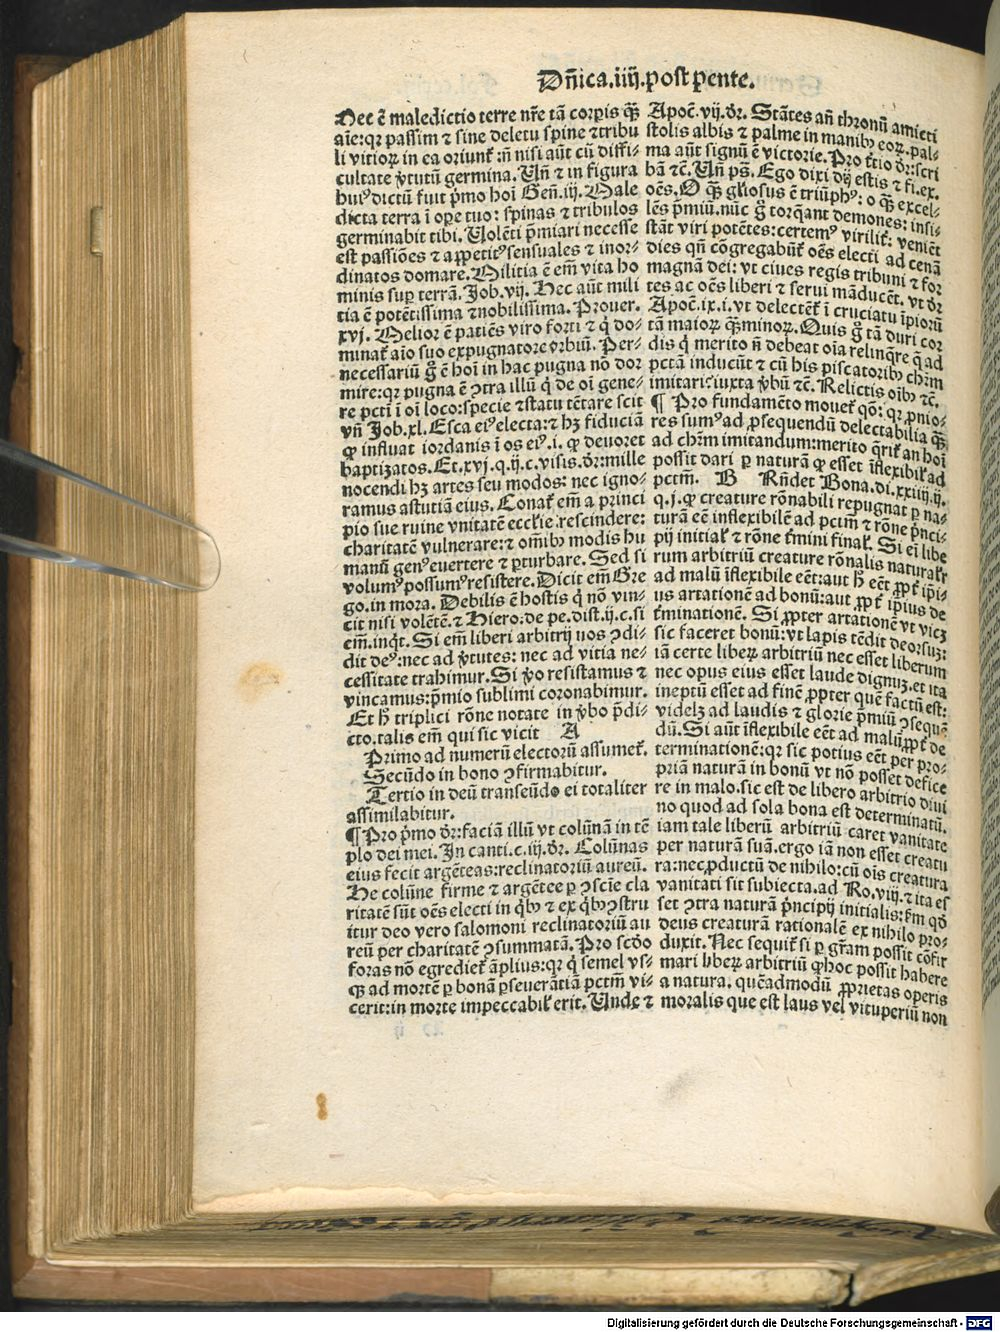 Dn̄ica.iiij.post pente.
Nec ē maledictio terre nr̄e tā corpis q̄ȝ
aīe:qr passim ⁊ sine deletu spine ⁊tribu
li vitioꝝ in ea oriunt̃:n̄ nisi aūt cū diffi-
cultate v̓tutū germina.Un̄ ⁊ in figura
huiꝰdictū fuit p̓mo hoī Gen̄.iij.Male
dicta terra ī oꝑe tuo: spinas ⁊ tribulos
germinabit tibi. Uolēti p̓miari necesse
est passiōes ⁊ appetitꝰsensuales ⁊ inor-
dinatos domare.Militia ē em̄ vita ho
minis suꝑ terrā.Job.vij.Hec aūt mili
tia ē potētissima ⁊nobilissima.Prouer.
xvj.Melior ē patiēs viro forti ⁊ q̓ do-
minat̃ aīo suo expugnatore vrbiū.Per-
necessariū g̊ ē hoī in hac pugna nō dor
mire:qr pugna ē ↄtra illū q̓ de oī gene-
re pctī ī oī loco:specie ⁊statu tētare scit
vn̄ Job.xl.Esca eiꝰelecta:⁊ hȝ fiduciā
ꝙ influat iordanis ī os eiꝰ.i.ꝙ deuoret
baptizatos.Et.xvj.q.ij.c.visis.dr̄:mille
nocendi hȝ artes seu modos: nec igno-
ramus astutiā eius.Conat̃ em̄ a princi
pio sue ruine vnitatē eccl̄ie rescindere:
charitatē vulnerare:⁊ om̄ibꝰ modis hu
manū genꝰeuertere ⁊ ꝑturbare. Sed si
volumꝰpossumꝰresistere.Dicit em̄ Gre
go.in mora. Debilis ē hostis q̓ nō vin-
cit nisi volētē.⁊ Hiero.de pe.dist.ij.c.si
em̄.inq̓t.Si em̄ liberi arbitrij nos ↄdi-
dit deꝰ:nec ad v̓tutes: nec ad vitia ne-
cessitate trahimur.Si v̊o resistamus ⁊
vincamus:p̓mio sublimi coronabimur.
Et h̄ triplici rōne notate in v̓bo p̄di-
cto.talis em̄ qui sic vicit A
Primo ad numerū electorū assumet̃.
Secūdo in bono ↄfirmabitur.
Tertio in deū transeūdo ei totaliter
assimilabitur.
¶Pro p̓mo dr̄:faciā illū vt colūnā in tē
plo dei mei.In canti.c.iij.dr̄. Colūnas
eius fecit argēteas:reclinatoriū aureū.
He colūne firme ⁊ argētee ꝑ ↄsciē cla
ritatē sūt oēs electi in q̓bꝰ ⁊ ex q̓bꝰↄstru
itur deo vero salomoni reclinatoriū au
reū per charitatē ↄsummatā.Pro scd̊o
foras nō egrediet̃ āplius:qr q̓ semel vs-
qȝ ad mortē ꝑ bonā ꝑseuerātiā pctm̄ vi-
cerit:in morte impeccabil̓ erit.Unde ⁊
Apoc̄.vij.dr̄. Stātes an̄ thronū amicti
stolis albis ⁊ palme in manibꝰ eoꝝ.pal-
ma aūt signū ē victorie.Pro t̓tio dr̄:scri
bā ⁊c̄.Un̄ ps̄.Ego dixi dij estis ⁊ fi.ex.
oēs.O q̄ȝ gl̓iosus ē triūphꝰ: o q̄ȝ excel-
lēs p̓miū.nūc g̊ torq̄ant demones: insi-
stāt viri potētes:certemꝰ virilit̃: veniēt
dies qn̄ cōgregabūt̃ oēs electi ad cenā
magnā dei: vt ciues regis tribuni ⁊ for
tes ac oēs liberi ⁊ serui māducēt. vt dr̄
Apoc̄.ix.i.vt delectēt̃ ī cruciatu īpiorū
tā maioꝝ q̄ȝminoꝝ.Quis g̊ tā duri cor
dis q̓ merito n̄ debeat oīa relinq̄re q̄ ad
pctā inducūt ⁊ cū his piscatoribꝰ chr̄m
imitari?iuxta v̓bū ⁊c̄. Relictis oībꝰ ⁊c̄.
¶ Pro fundamēto mouet̃ qō: qr ꝓnio-
res sumꝰad ꝓsequendū delectabilia q̄ȝ
ad chr̄m imitandum:merito q̄rit̃ an hoī
possit dari ꝑ naturā ꝙ esset īflexibil̓ ad
pctm̄. B Rn̄det Bona.di.xxiiij.ij.
q.j.ꝙ creature rōnabili repugnat ꝑ na-
turā eē inflexibilē ad pctm̄ ⁊ rōne p̓nci-
pij initial̓ ⁊ rōne t̓mini final̓. Si em̄ libe
rum arbitriū creature rōnalis naturalr̄
ad malū īflexibile eēt:aut h̄ eēt ꝓpt̃ ip̄i-
us artationē ad bonū:aut ꝓpt̃ ipius de
t̓minationē. Si ꝓpter artationē vt vicȝ
sic faceret bonū:vt lapis tēdit deorsuȝ:
iā certe libeꝝ arbitriū nec esset liberum
nec opus eius esset laude dignuȝ.et ita
ineptū esset ad finē ꝓpter quē factū est:
videlȝ ad laudis ⁊ glorie p̓miū ↄsequē
dū.Si aūt īflexibile eēt ad malū,ꝓpt̃ de
terminationē:qr sic potius eēt per pro-
priā naturā in bonū vt nō posset defice
re in malo.sic est de libero arbitrio diui
no quod ad sola bona est determinatū.
iam tale liberū arbitriū caret vanitate
per naturā suā.ergo iā non esset creatu
ra:nec,ꝓductū de nihilo:cū oīs creatura
vanitati sit subiecta.ad Ro.viij.⁊ ita es
set ↄtra naturā p̓ncipij initialis:f̄m qđ
deus creaturā rationalē ex nihilo pro-
duxit.Nec sequit̃ si ꝑ gr̄am possit cōfir
mari libeꝝ arbitriū ꝙ hoc possit habere
a natura. quēadmodū ꝓprietas operis
moralis que est laus vel vituperiū non
Digitalisierung gefördert durch die Deutsche Forschungsgemeinschaft - DFG